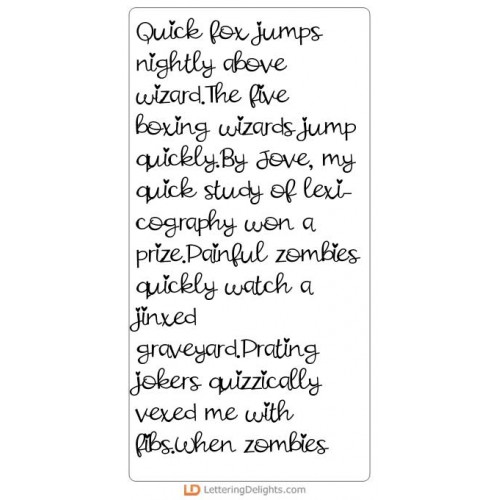 Quick fox jumps
nightly above
wizard.The five
boxing wizards jump
quickly.By Jove, my
quick study of lexi-
cography won a
prize.Painful zombies
quickly watch a
jinxed
graveyard.Prating
jokers quizzically
vexed me with
fibs.When zombies
LD LetteringDelights.com